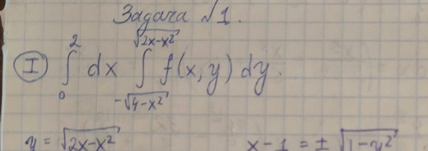 Задача №1.
I ∫₀² dx ∫_{-√(4-x²)}^{√(2x-x²)} f(x,y) dy.
y = √(2x-x²) x-1 = ± √(1-y²)